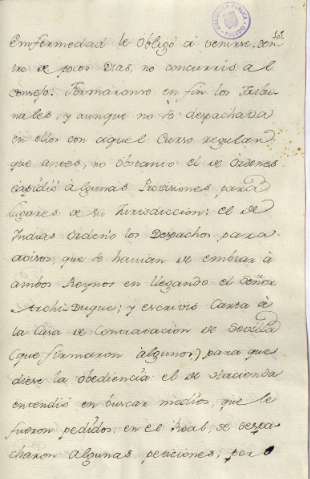 enfermedad le obligó á venirse, den
tro de pocos Dias, no concurrió al
consejo. Formaronse en fin los Tribu
nales, y aunque no se despachava
en ellos con aquel Curso regular
que antes, no obstante el de Ordenes
expidió algunas Provisiones para
lugares de su Jurisdiccion; el de
Indias ordenó los Despachos para
avisos, que se havian de embiar á
ambos Reynos en llegando el Señor
Archi Duque; y escrivió Carta á
la Casa de Contratacion de Sevilla
(que firmaron algunos) para que
diese la obediencia el de Hacienda
entendió en buscar medios, que le
fueron pedidos; en el Real, se despa
charon algunas peticiones; pero